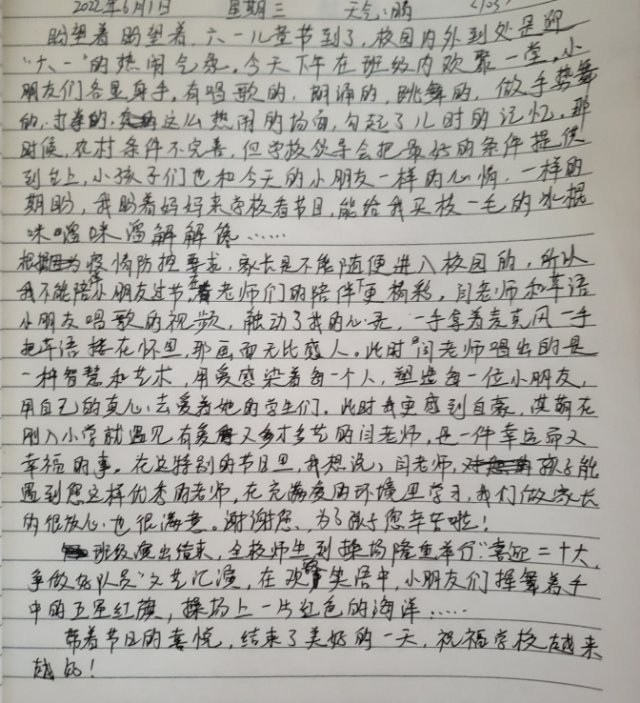 2022年6月1日 星期三 天气:晴
盼望着盼望着,六一儿童节到了,校园内外到处是即
"六一"的热闹气象。今天下午在班级内欢聚一堂,小
朋友们各显身手,有唱歌的,朗诵的,跳舞的,做手势舞
的,打拳的,这么热闹的场面,勾起了儿时的记忆,那
时候,农村条件不完善,但学校领导会把最好的条件提供
到台上,小孩子们也和今天的小朋友一样的心情,一样的
期盼,我盼着妈妈来学校看节目,能给我买枝一毛的冰棍
咪嘻咪溜解解馋……
根据疫情防控要求,家长是不能随便进入校园的,所以
我不能陪小朋友过节,老师们的陪伴更精彩,闫老师和草语
小朋友唱歌的视频,触动了我的心灵,一手拿着麦克风一手
把草语搂在怀里,那画面无比感人。此时闫老师唱出的是
一种智慧和艺术,用爱感染着每一个人,塑造每一位小朋友,
用自己的真心去爱着她的学生们。此时我更感到自豪,淇萌在
刚入小学就遇见有爱又多才多艺的闫老师,是一件幸运而又
幸福的事。在这特别的节日里,我想说:闫老师,孩子能
遇到您这样优秀的老师,在充满爱的环境里学习,我们做家长
的很放心,也很满意。谢谢您,为了孩子您辛苦啦!
班级演出结束,全校师生到操场隆重举行"喜迎二十大,
争做好队员"文艺汇演,在欢声笑语中,小朋友们挥舞着手
中的五星红旗,操场上一片红色的海洋……
带着节日的喜悦,结束了美好的一天,祝福学校越来
越好!